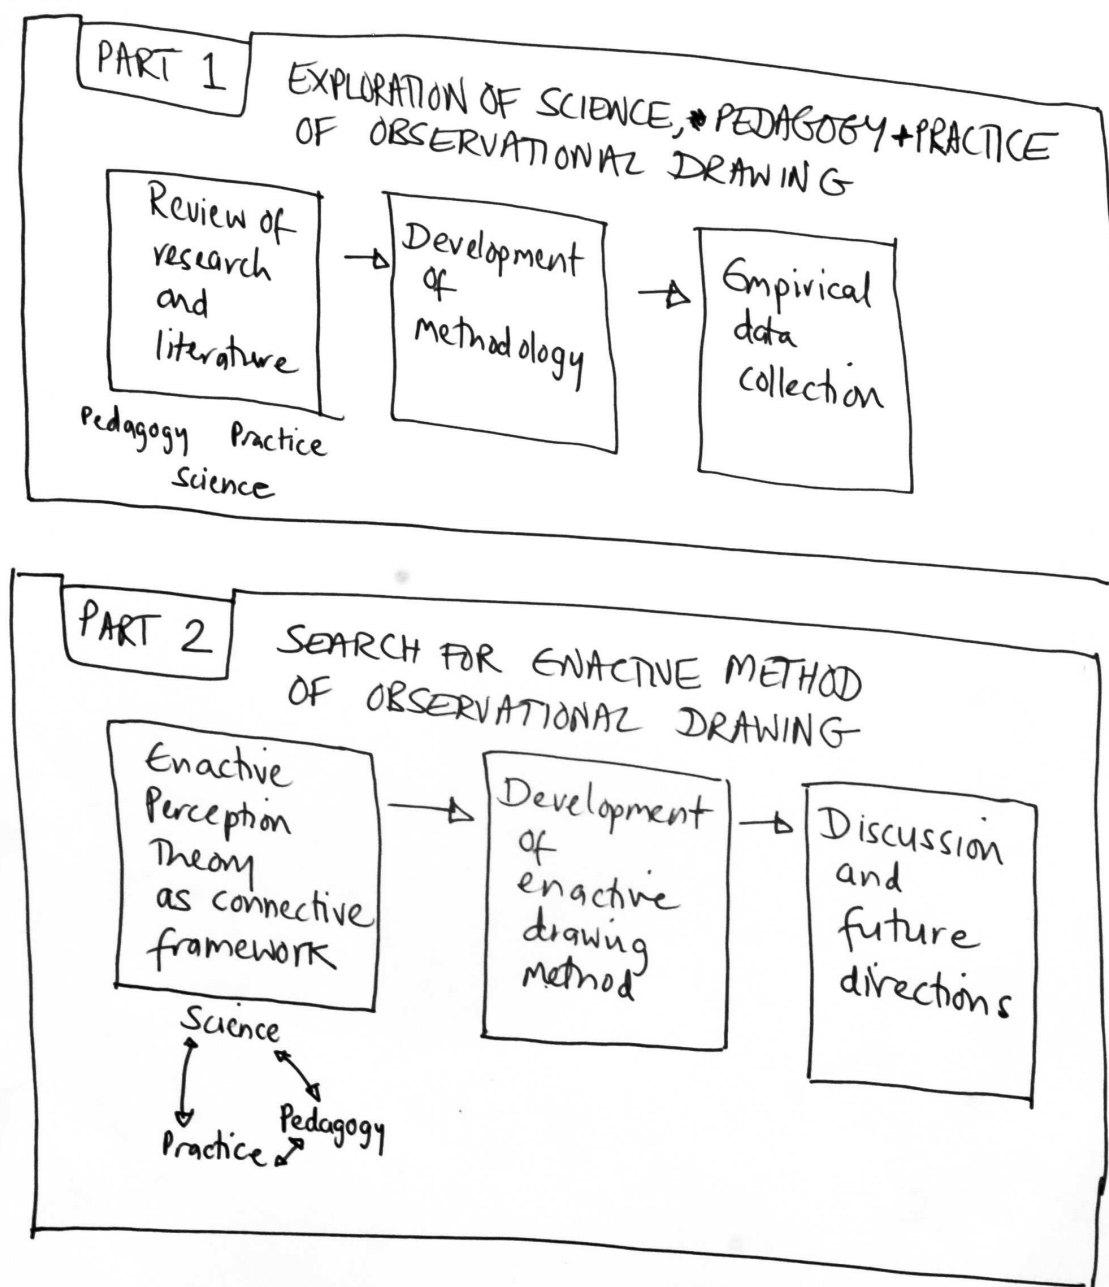 PART 1
EXPLORATION OF SCIENCE, PEDAGOGY + PRACTICE
OF OBSERVATIONAL DRAWING
Review of
research
and
literature
Development
of
methodology
Empirical
data
collection
Pedagogy Practice
Science
PART 2
SEARCH FOR ENACTIVE METHOD
OF OBSERVATIONAL DRAWING
Enactive
Perception
Theory
as connective
framework
Development
of
enactive
drawing
method
Discussion
and
future
directions
Science
Pedagogy
Practice